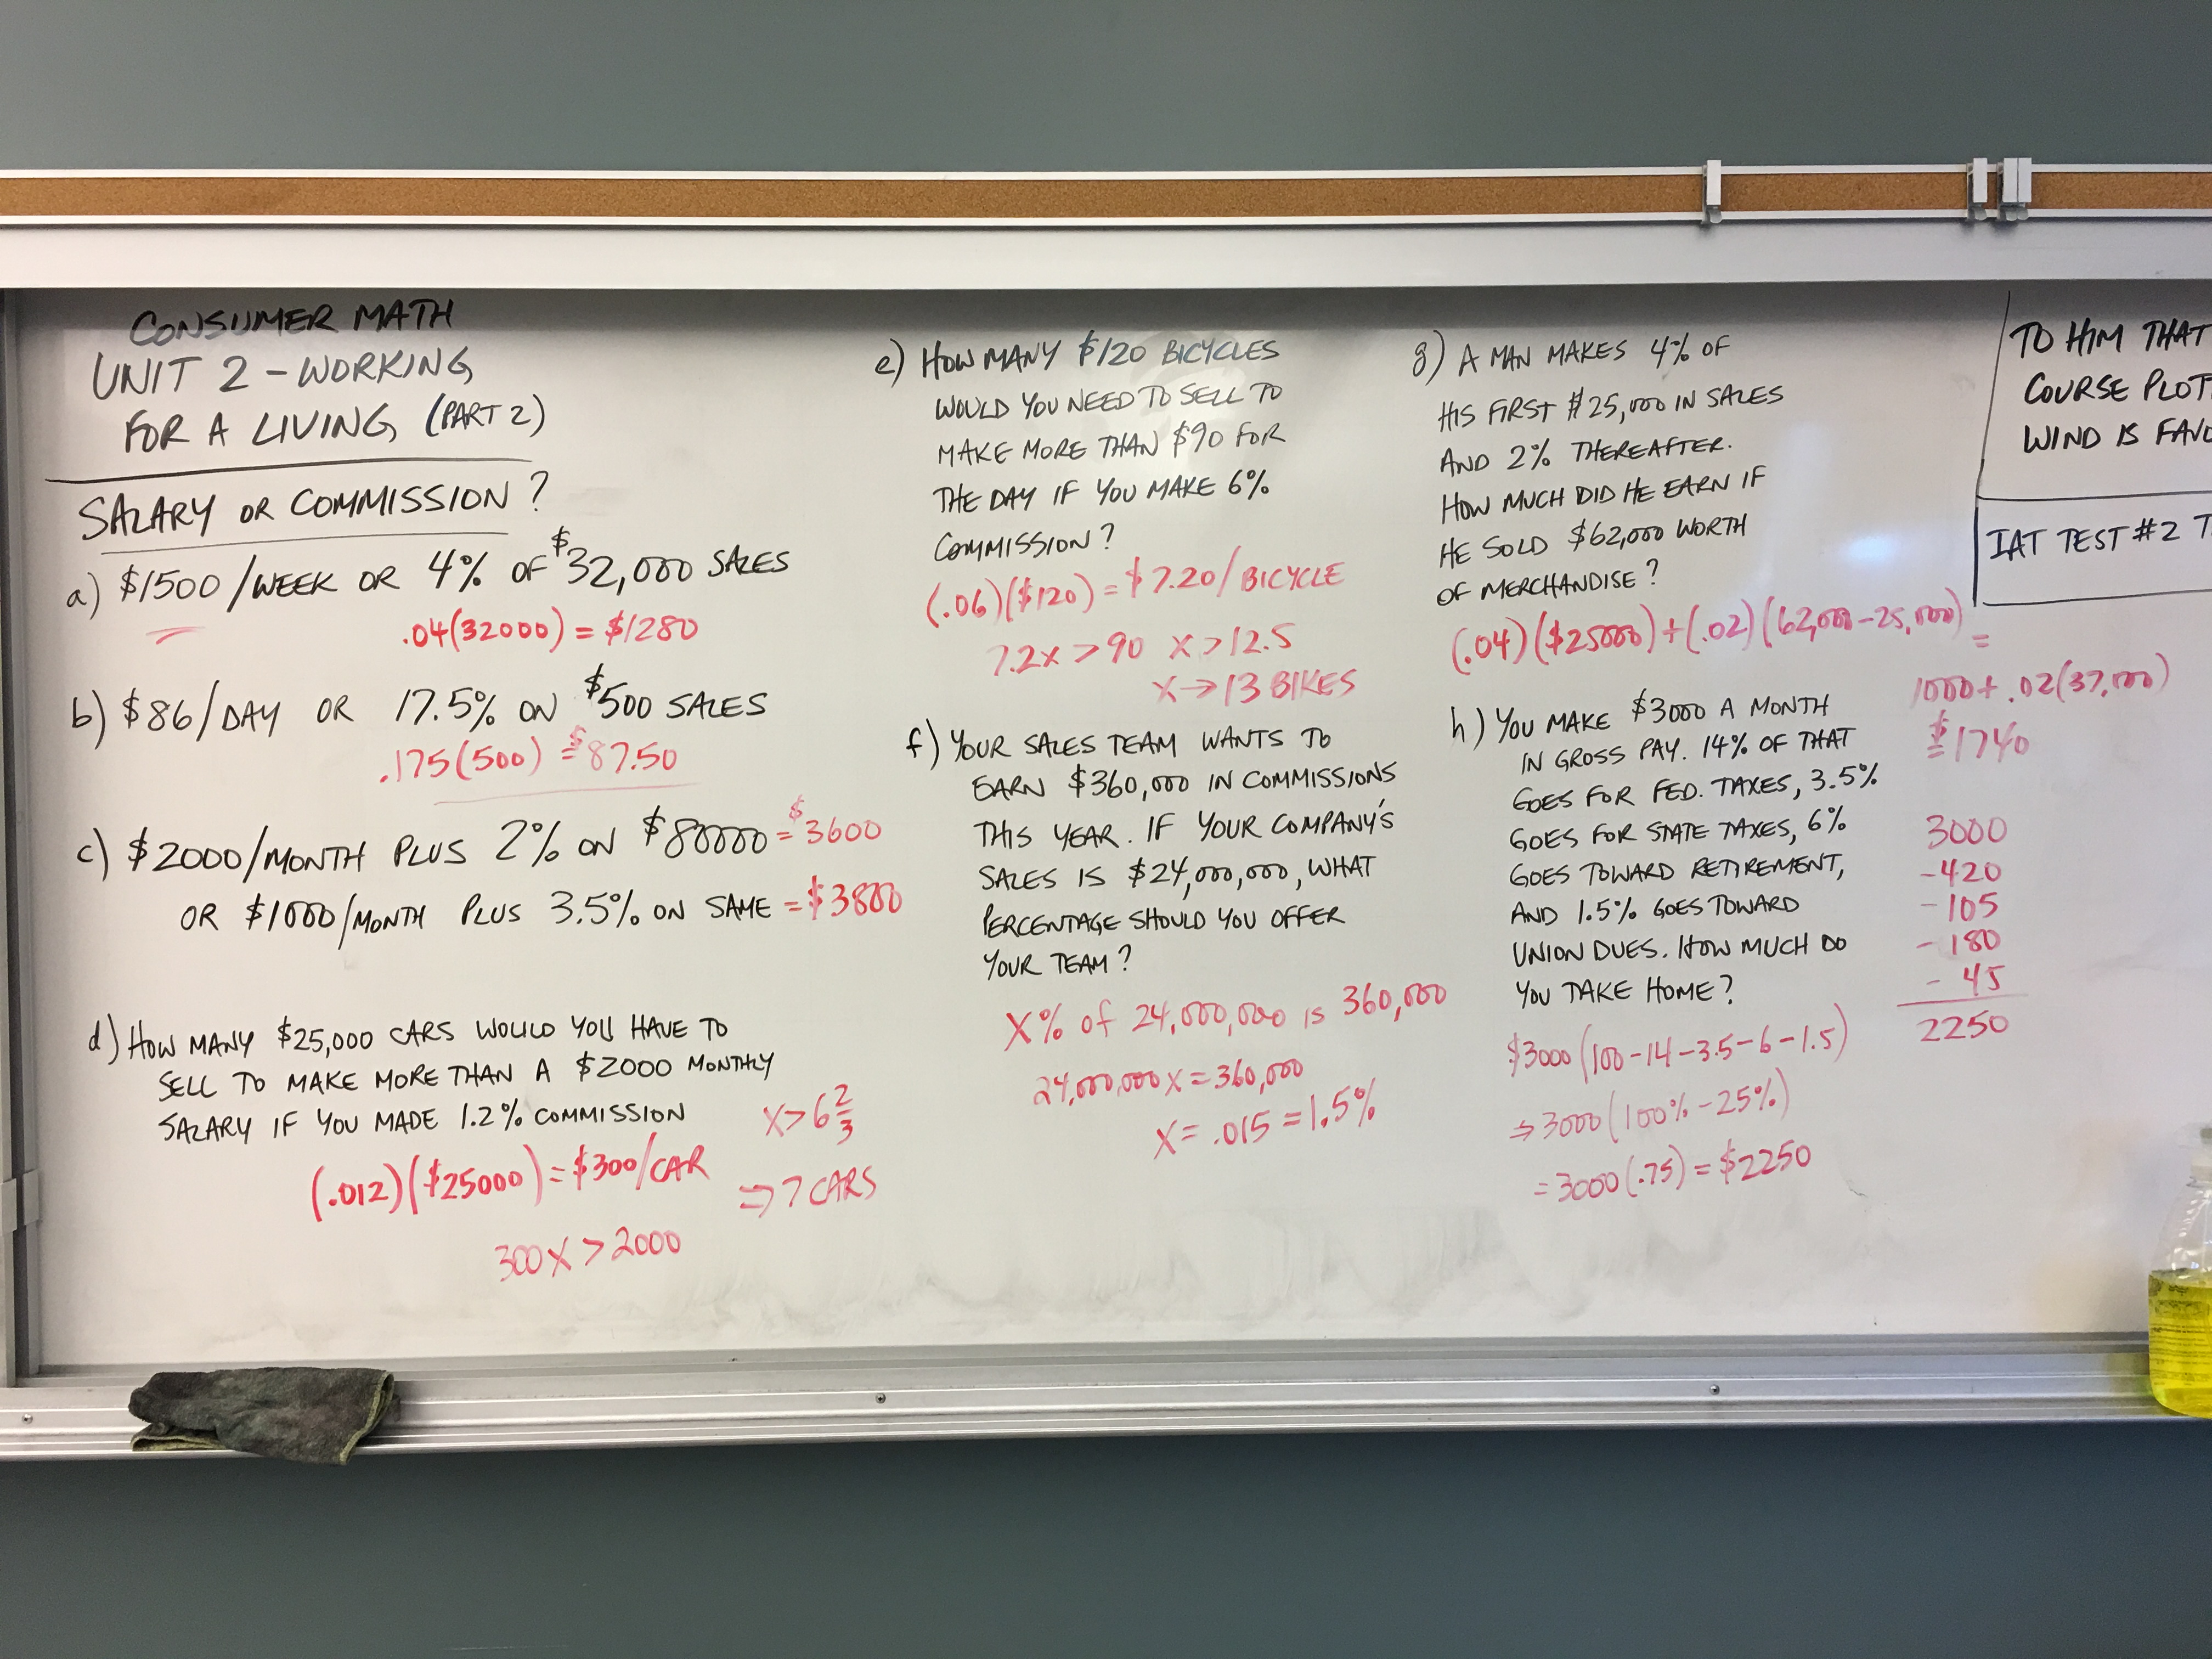 CONSUMER MATH
UNIT 2 - WORKING
FOR A LIVING (PART 2)
SALARY OR COMMISSION?
a) $1500/WEEK OR 4% OF $32,000 SALES
.04(32000) = $1280
b) $86/DAY OR 17.5% ON $500 SALES
.175(500) = $87.50
c) $2000/MONTH PLUS 2% ON $80000 = $3600
OR $1000/MONTH PLUS 3.5% ON SAME = $3800
d) HOW MANY $25,000 CARS WOULD YOU HAVE TO
SELL TO MAKE MORE THAN A $2000 MONTHLY
SALARY IF YOU MADE 1.2% COMMISSION
(.012)($25000) = $300/CAR
300X > 2000
X > 6 2/3
⇒ 7 CARS
e) HOW MANY $120 BICYCLES
WOULD YOU NEED TO SELL TO
MAKE MORE THAN $90 FOR
THE DAY IF YOU MAKE 6%
COMMISSION?
(.06)($120) = $7.20/BICYCLE
7.2X > 90 X > 12.5
X → 13 BIKES
f) YOUR SALES TEAM WANTS TO
EARN $360,000 IN COMMISSIONS
THIS YEAR. IF YOUR COMPANY'S
SALES IS $24,000,000, WHAT
PERCENTAGE SHOULD YOU OFFER
YOUR TEAM?
X% of 24,000,000 is 360,000
24,000,000X = 360,000
X = .015 = 1.5%
g) A MAN MAKES 4% OF
HIS FIRST $25,000 IN SALES
AND 2% THEREAFTER.
HOW MUCH DID HE EARN IF
HE SOLD $62,000 WORTH
OF MERCHANDISE?
(.04)($25000) + (.02)(62,000 - 25,000) =
1000 + .02(37,000)
= $1740
h) YOU MAKE $3000 A MONTH
IN GROSS PAY. 14% OF THAT
GOES FOR FED. TAXES, 3.5%
GOES FOR STATE TAXES, 6%
GOES TOWARD RETIREMENT,
AND 1.5% GOES TOWARD
UNION DUES. HOW MUCH DO
YOU TAKE HOME?
$3000(100 - 14 - 3.5 - 6 - 1.5)
⇒ 3000(100% - 25%)
= 3000(.75) = $2250
3000
- 420
- 105
- 180
- 45
2250
TO HIM THAT
COURSE PLOT
WIND IS FAVO
IAT TEST #2 T